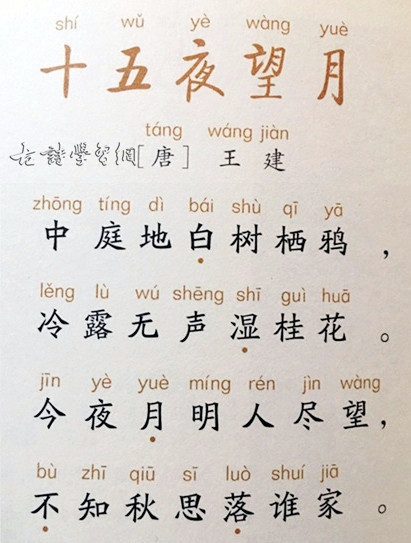 shí wǔ yè wàng yuè
十五夜望月
táng wáng jiàn
古诗学习网[唐] 王建
zhōng tíng dì bái shù qī yā
中庭地白树栖鸦，
lěng lù wú shēng shī guì huā
冷露无声湿桂花。
jīn yè yuè míng rén jìn wàng
今夜月明人尽望，
bù zhī qiū sī luò shuí jiā
不知秋思落谁家。